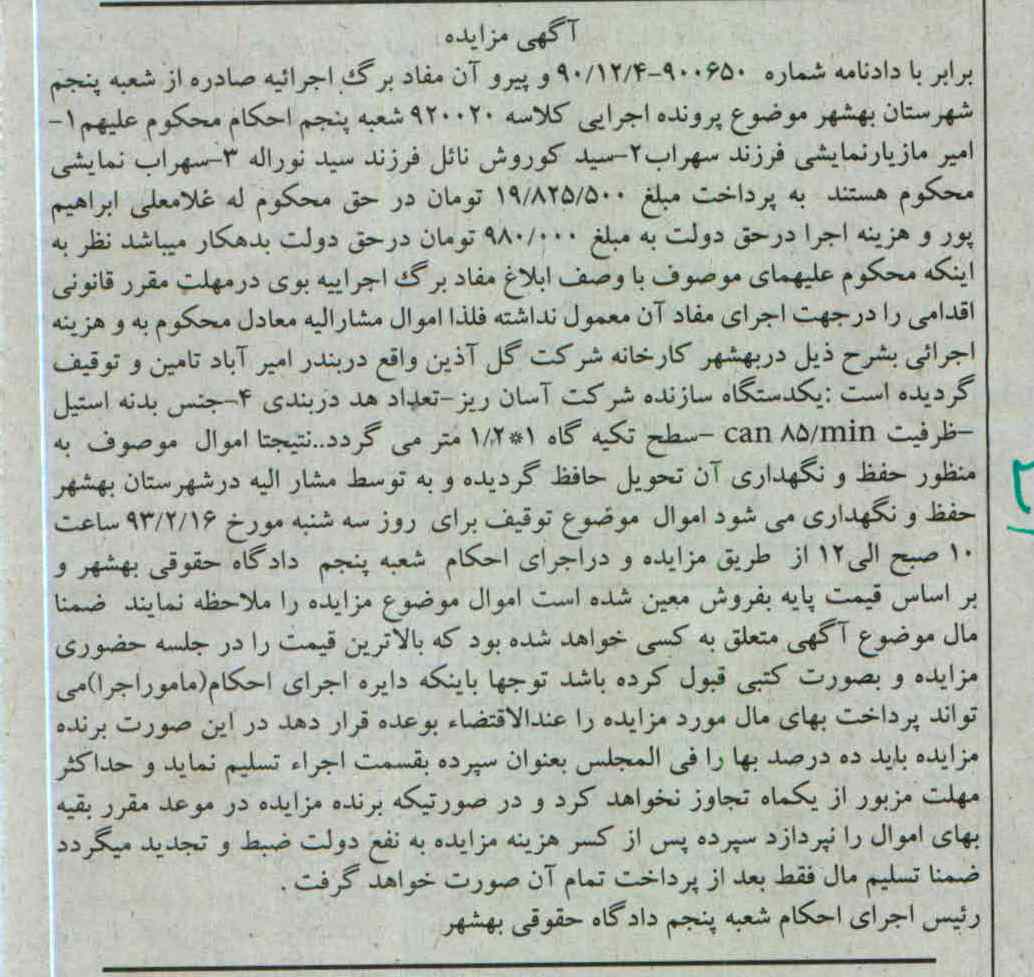 آگهی مزایده
برابر با دادنامه شماره ۹۰۰۶۵۰-۹۰/۱۲/۴ و پیرو آن مفاد برگ اجرائیه صادره از شعبه پنجم
شهرستان بهشهر موضوع پرونده اجرایی کلاسه ۹۲۰۰۲۰ شعبه پنجم احکام محکوم علیهم ۱-
امیر مازیارنمایشی فرزند سهراب۲-سید کوروش نائل فرزند سید نوراله ۳-سهراب نمایشی
محکوم هستند به پرداخت مبلغ ۱۹/۸۲۵/۵۰۰ تومان در حق محکوم له غلامعلی ابراهیم
پور و هزینه اجرا درحق دولت به مبلغ ۹۸۰/۰۰۰ تومان درحق دولت بدهکار میباشد نظر به
اینکه محکوم علیهمای موصوف با وصف ابلاغ مفاد برگ اجراییه بوی درمهلت مقرر قانونی
اقدامی را درجهت اجرای مفاد آن معمول نداشته فلذا اموال مشارالیه معادل محکوم به و هزینه
اجرائی بشرح ذیل دربهشهر کارخانه شرکت گل آذین واقع دربندر امیر آباد تامین و توقیف
گردیده است :یکدستگاه سازنده شرکت آسان ریز-تعداد هد دربندی ۴-جنس بدنه استیل
-ظرفیت can ۸۵/min -سطح تکیه گاه ۱*۱/۲ متر می گردد..نتیجتا اموال موصوف به
منظور حفظ و نگهداری آن تحویل حافظ گردیده و به توسط مشار الیه درشهرستان بهشهر
حفظ و نگهداری می شود اموال موضوع توقیف برای روز سه شنبه مورخ ۹۳/۲/۱۶ ساعت
۱۰ صبح الی۱۲ از طریق مزایده و دراجرای احکام شعبه پنجم دادگاه حقوقی بهشهر و
بر اساس قیمت پایه بفروش معین شده است اموال موضوع مزایده را ملاحظه نمایند ضمنا
مال موضوع آگهی متعلق به کسی خواهد شده بود که بالاترین قیمت را در جلسه حضوری
مزایده و بصورت کتبی قبول کرده باشد توجها باینکه دایره اجرای احکام(ماموراجرا)می
تواند پرداخت بهای مال مورد مزایده را عندالاقتضاء بوعده قرار دهد در این صورت برنده
مزایده باید ده درصد بها را فی المجلس بعنوان سپرده بقسمت اجراء تسلیم نماید و حداکثر
مهلت مزبور از یکماه تجاوز نخواهد کرد و در صورتیکه برنده مزایده در موعد مقرر بقیه
بهای اموال را نپردازد سپرده پس از کسر هزینه مزایده به نفع دولت ضبط و تجدید میگردد
ضمنا تسلیم مال فقط بعد از پرداخت تمام آن صورت خواهد گرفت .
رئیس اجرای احکام شعبه پنجم دادگاه حقوقی بهشهر